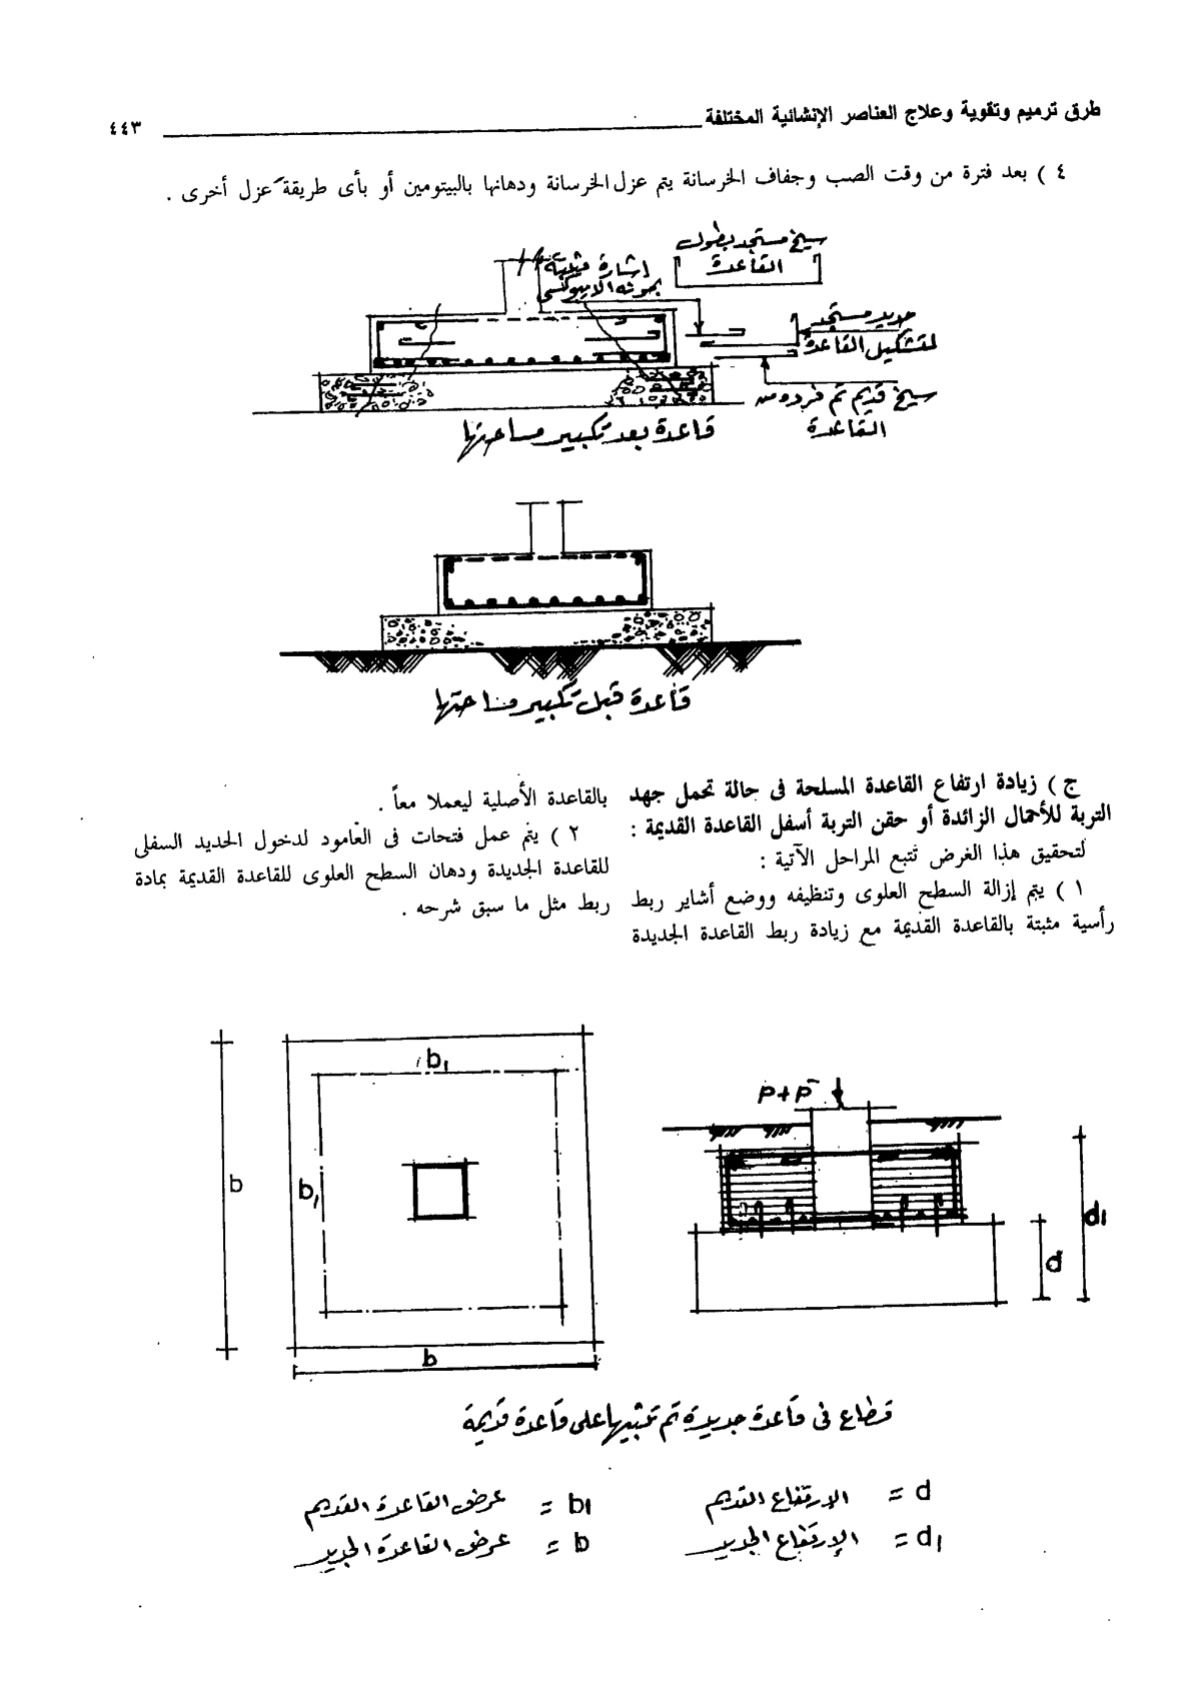 طرق ترميم وتقوية وعلاج العناصر الإنشائية المختلفة ٤٤٣
٤ ) بعد فترة من وقت الصب وجفاف الخرسانة يتم عزل الخرسانة ودهانها بالبيتومين أو بأى طريقة عزل أخرى .
سيخ مستجد بطول
القاعدة
اشارة مثبتة
بمونة الايبوكسى
حديد مستجد
لتشكيل القاعدة
سيخ قديم تم فرده من
القاعدة
قاعدة بعد تكبير مساحتها
قاعدة قبل تكبير مساحتها
ج ) زيادة ارتفاع القاعدة المسلحة فى حالة تحمل جهد
التربة للأحمال الزائدة أو حقن التربة أسفل القاعدة القديمة :
لتحقيق هذا الغرض تتبع المراحل الآتية :
١ ) يتم إزالة السطح العلوى وتنظيفه ووضع أشاير ربط
رأسية مثبتة بالقاعدة القديمة مع زيادة ربط القاعدة الجديدة
بالقاعدة الأصلية ليعملا معاً .
٢ ) يتم عمل فتحات فى العامود لدخول الحديد السفلى
للقاعدة الجديدة ودهان السطح العلوى للقاعدة القديمة بمادة
ربط مثل ما سبق شرحه .
b1
b
b1
b
P+P¯
d1
d
قطاع فى قاعدة جديدة تم تثبيتها على قاعدة قديمة
d = الارتفاع القديم
d1 = الارتفاع الجديد
b1 = عرض القاعدة القديم
b = عرض القاعدة الجديد